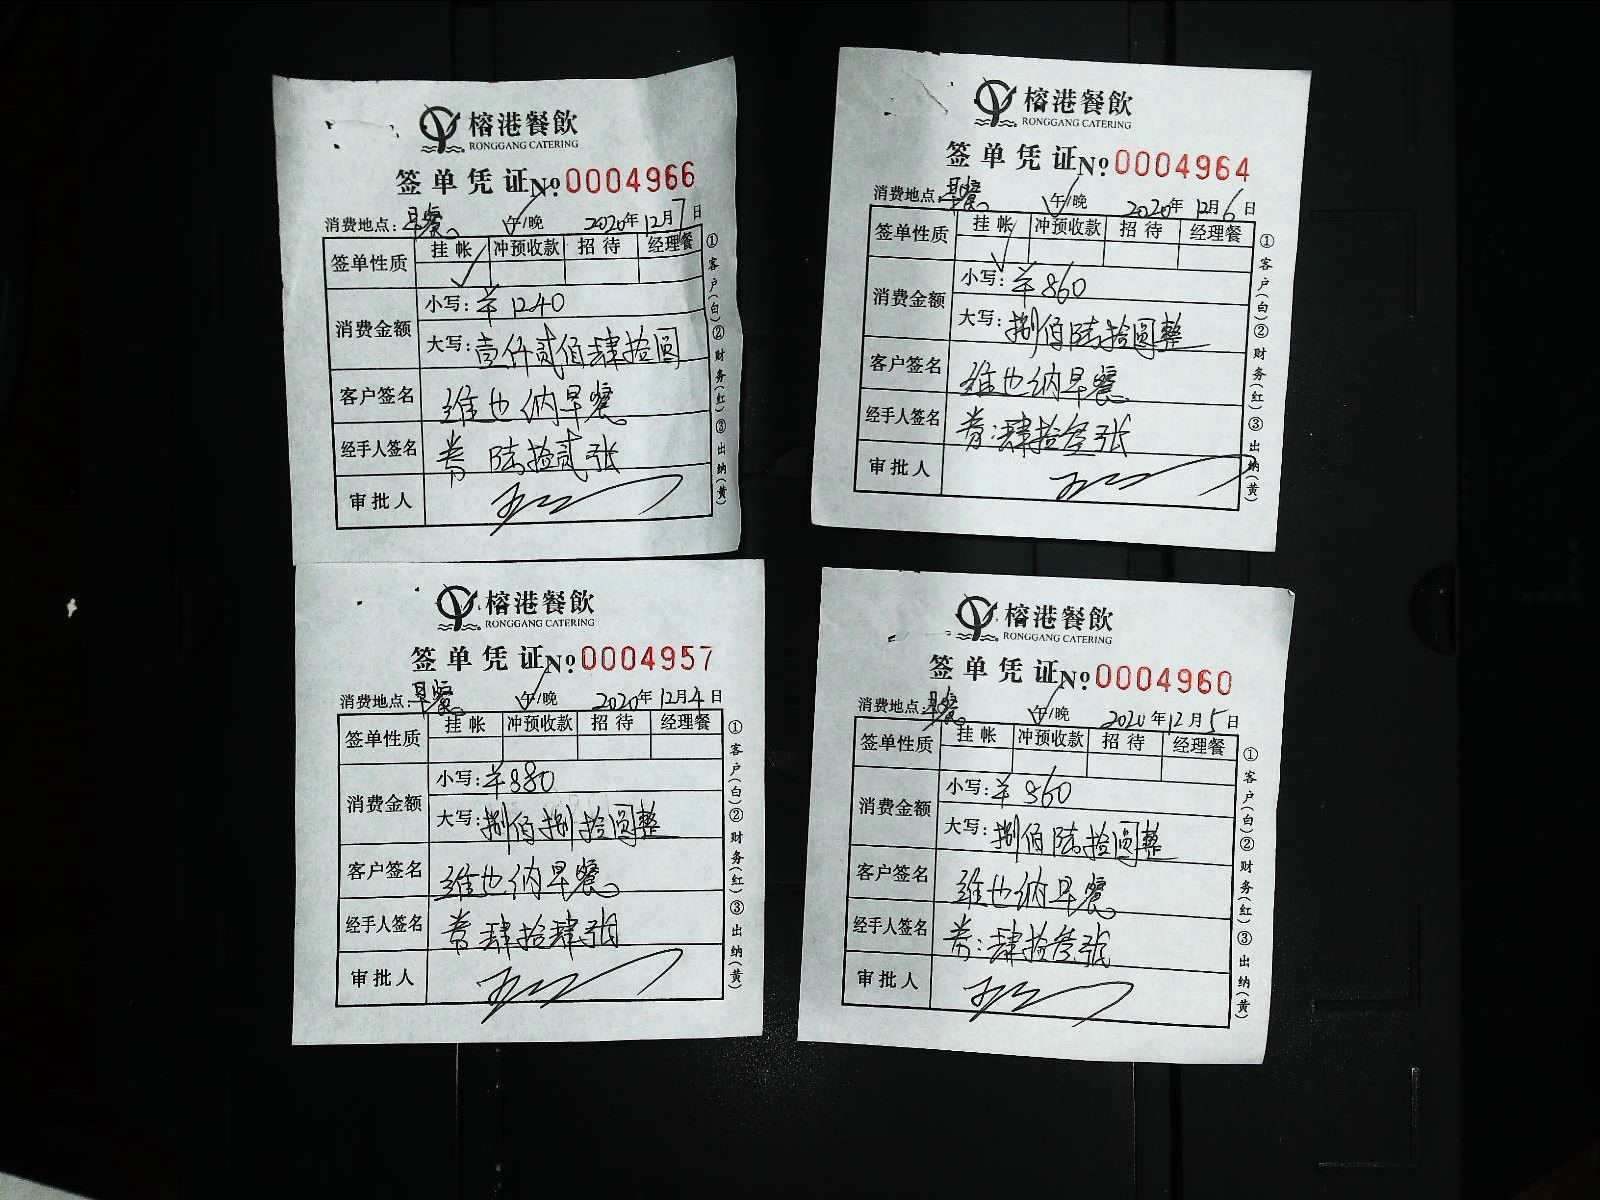 榕港餐飲
RONGGANG CATERING
签单凭证 No 0004966
消费地点：早餐 午/晚 2020年12月7日
签单性质 挂帐 冲预收款 招待 经理餐
消费金额 小写：¥1240
大写：壹仟贰佰肆拾圆
客户签名 维也纳早餐
经手人签名 券 陆拾贰张
审批人
①客户(白)②财务(红)③出纳(黄)
榕港餐飲
RONGGANG CATERING
签单凭证 No 0004964
消费地点：早餐 午/晚 2020年12月6日
签单性质 挂帐 冲预收款 招待 经理餐
消费金额 小写：¥860
大写：捌佰陆拾圆整
客户签名 维也纳早餐
经手人签名 券：肆拾叁张
审批人
①客户(白)②财务(红)③出纳(黄)
榕港餐飲
RONGGANG CATERING
签单凭证 No 0004957
消费地点：早餐 午/晚 2020年12月4日
签单性质 挂帐 冲预收款 招待 经理餐
消费金额 小写：¥880
大写：捌佰捌拾圆整
客户签名 维也纳早餐
经手人签名 券肆拾肆张
审批人
①客户(白)②财务(红)③出纳(黄)
榕港餐飲
RONGGANG CATERING
签单凭证 No 0004960
消费地点：早餐 午/晚 2020年12月5日
签单性质 挂帐 冲预收款 招待 经理餐
消费金额 小写：¥860
大写：捌佰陆拾圆整
客户签名 维也纳早餐
经手人签名 券：肆拾叁张
审批人
①客户(白)②财务(红)③出纳(黄)